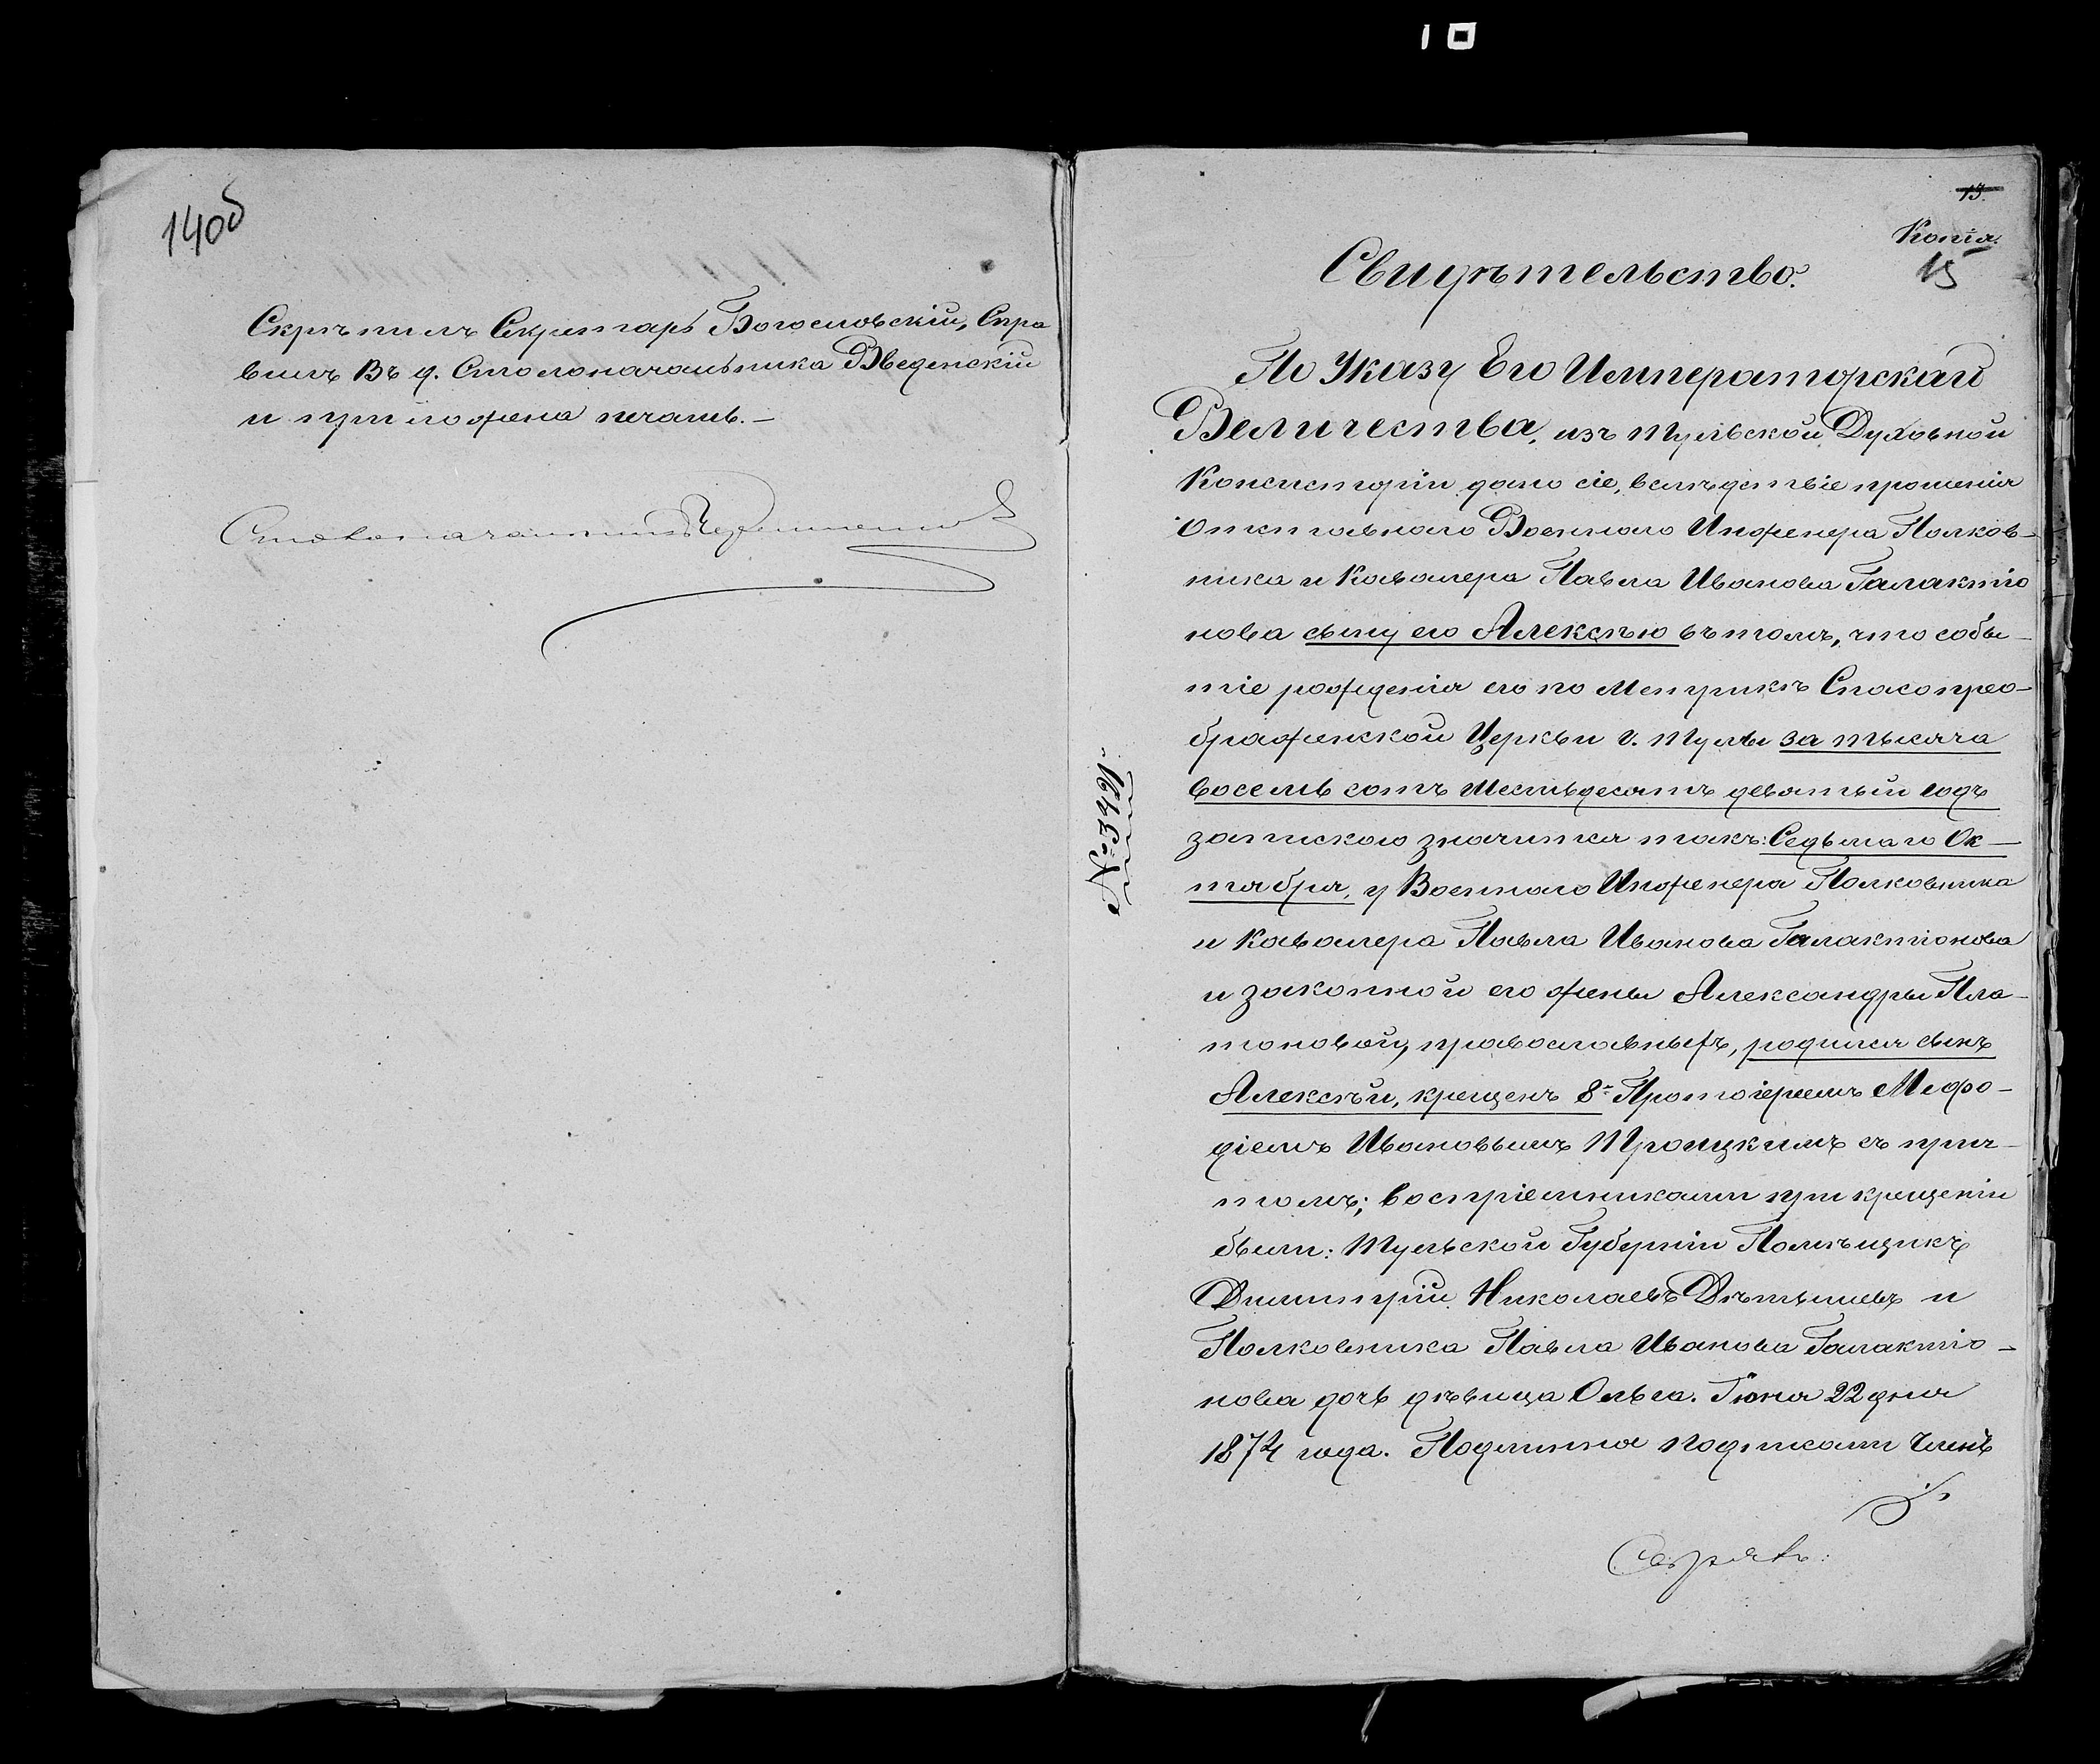 10
14об
Скрѣпилъ Секретарь Богословскій, Спра
вилъ В. д. Столоначальника Введенскій
и приложена печать.—
Столоначальникъ
13.
Копія.
15
Свидѣтельство.
По Указу Его Императорскаго
Величества, изъ Тульской Духовной
Консисторіи дано сіе, вслѣдствіе прошенія
Отставнаго Военнаго Инженера Полков-
ника и Кавалера Павла Иванова Галактіо
нова сыну его Алексѣю въ томъ, что собы-
тіе рожденія его по Метрикѣ Спасопрео-
браженской Церкви г. Тулы за тысяча
восемь сотъ шестьдесятъ девятый годъ
запискою значится такъ: Седьмаго Ок-
тября, у Военнаго Инженера Полковника
и Кавалера Павла Иванова Галактіонова
и законной его жены Александры Пла-
тоновой, православныхъ, родился сынъ
Алексѣй, крещенъ 8го Протоіереемъ Мефо-
діемъ Ивановымъ Троицкимъ съ прич-
томъ; воспріемниками при крещеніи
были: Тульской Губерніи Помѣщикъ
Димитрій Николаевъ Дѣтышевъ и
Полковника Павла Иванова Галактіо-
нова дочь дѣвица Ольга. Іюня 22 дня
1874 года. Подлинное подписали Членъ
№ 3421